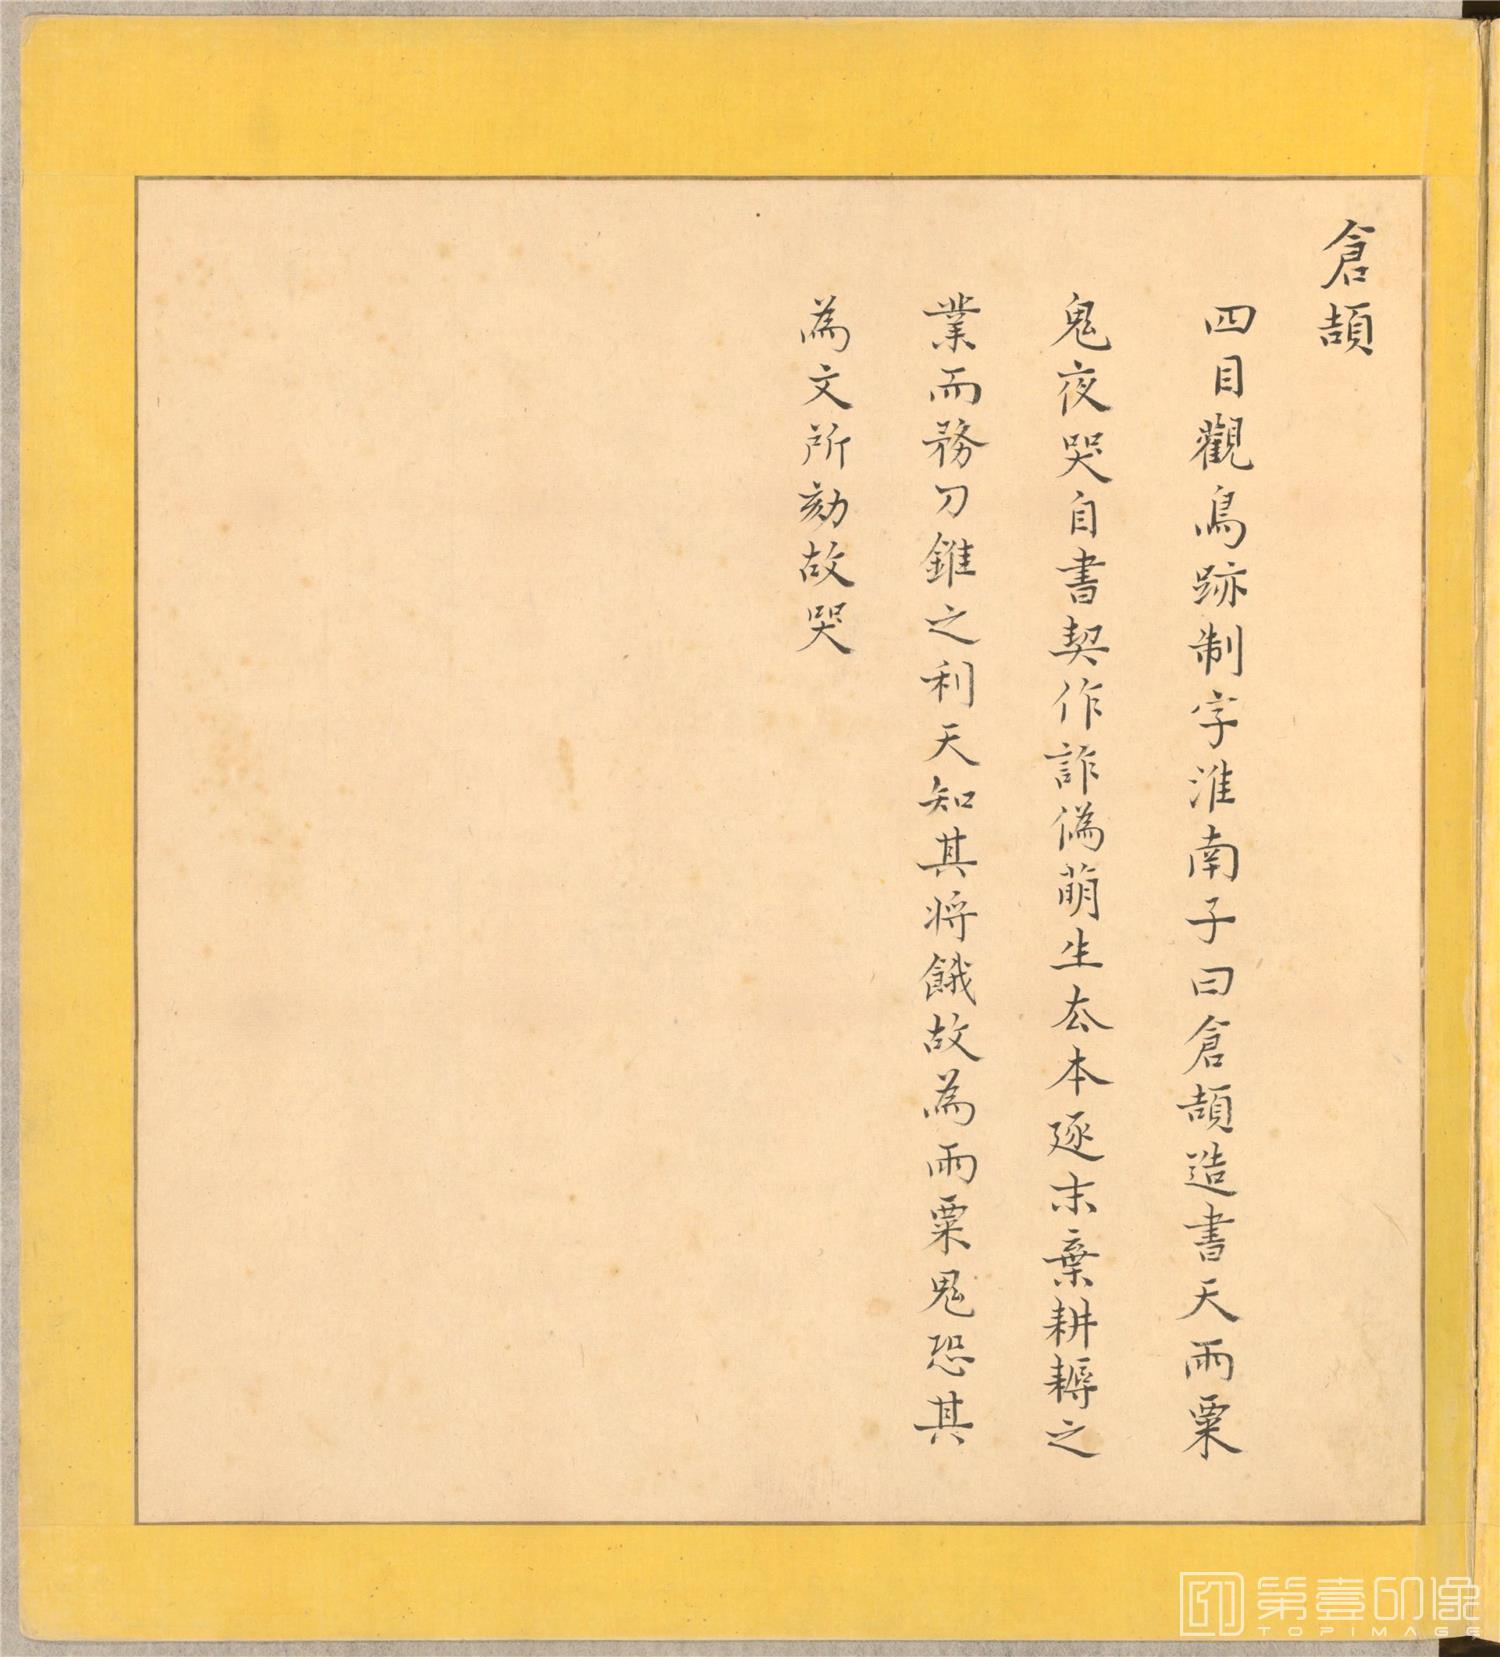 倉頡
四目觀鳥跡制字淮南子曰倉頡造書天雨粟
鬼夜哭自書契作詐偽萌生厺本逐末棄耕耨之
業而務刀錐之利天知其將餓故為雨粟鬼恐其
為文所劾故哭
第壹印像
TOPIMAGE